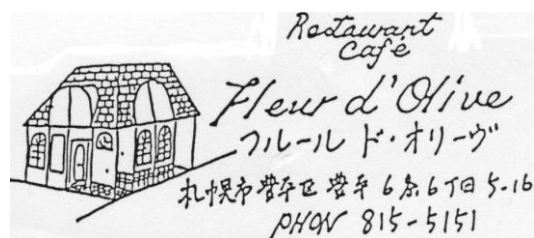 Restaurant
Café
Fleur d'Olive
フルール ド・オリーヴ
札幌市豊平区豊平6条6丁目5-16
PHON 815-5151